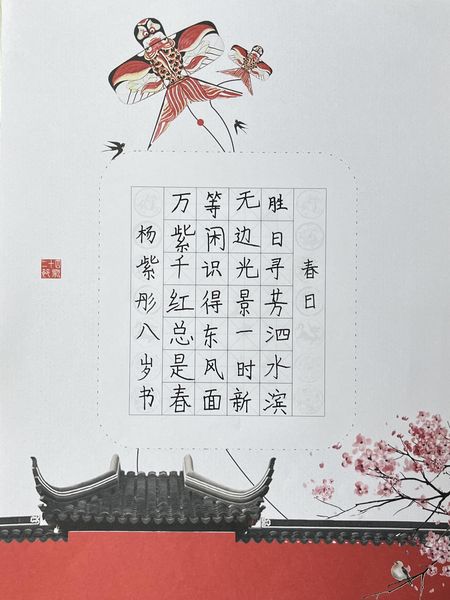 春日
胜日寻芳泗水滨
无边光景一时新
等闲识得东风面
万紫千红总是春
杨紫彤八岁书